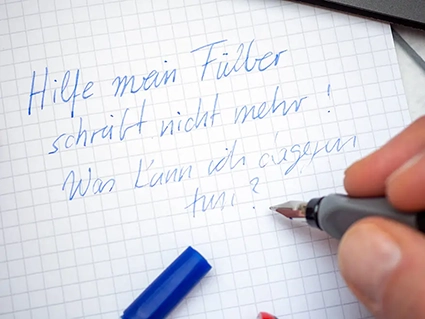 Hilfe mein Füller
schreibt nicht mehr!
Was kann ich dagegen
tun?